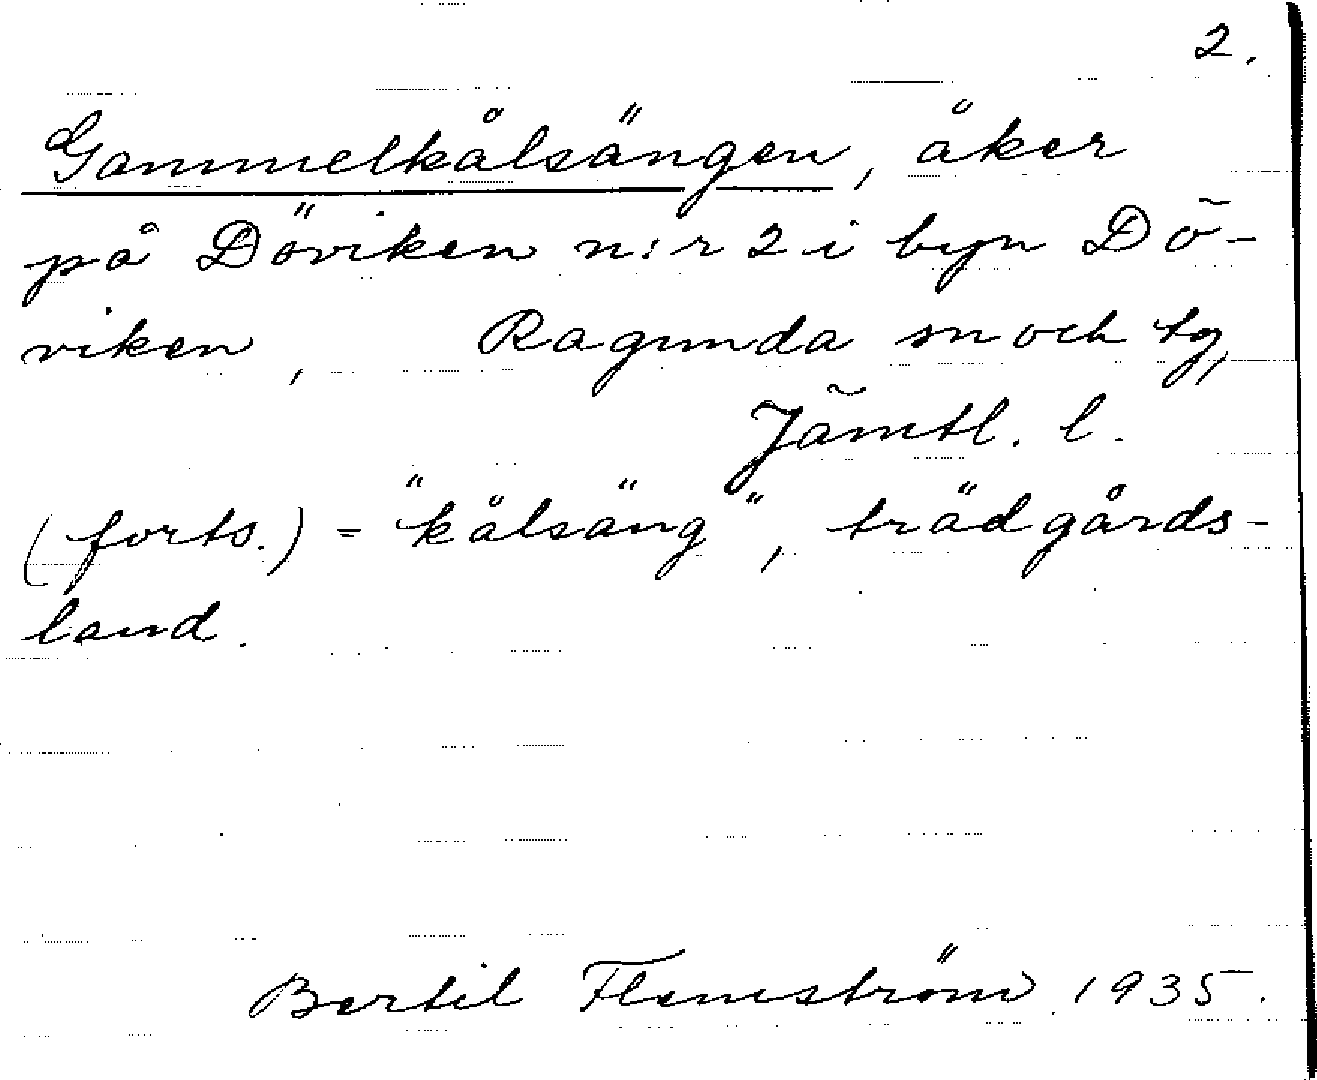 2.
Gammelkålsängen, åker
på Döviken n:r 2 i byn Dö-
viken, Ragunda sn och tg,
Jämtl. l.
(forts.) = "kålsäng", trädgårds-
land.
Bertil Flemström 1935.